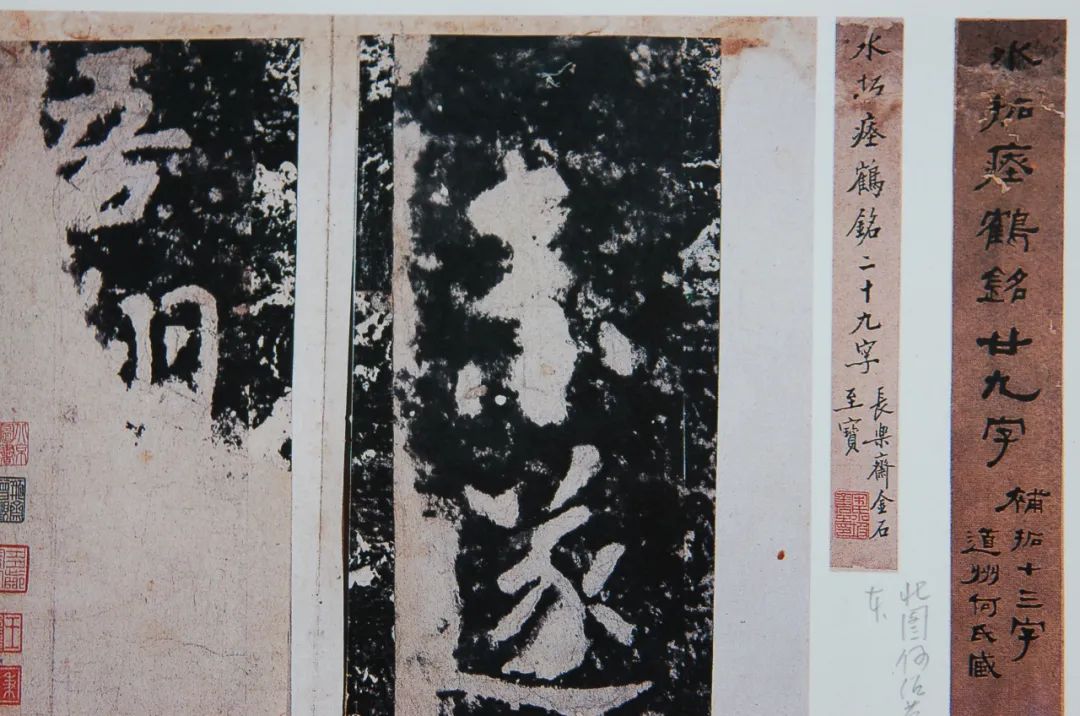 水拓瘞鶴銘廿九字
補拓十三字
道州何氏藏
水拓瘞鶴銘二十九字
長樂齋金石
至寶
北图何绍
本
未遂
吾